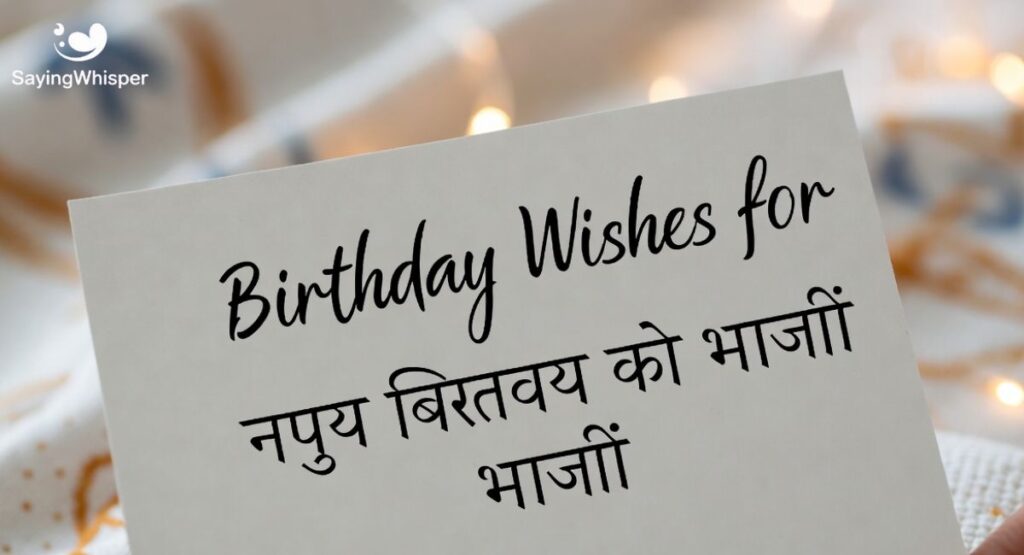 SayingWhisper
Birthday Wishes for
नपुय बिरतवय को भाजाीं
भाजाीं